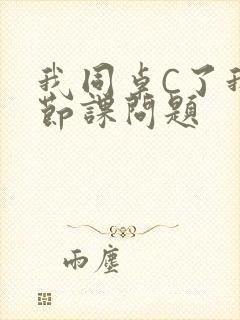 我同桌C了我
节課問題
雨塵